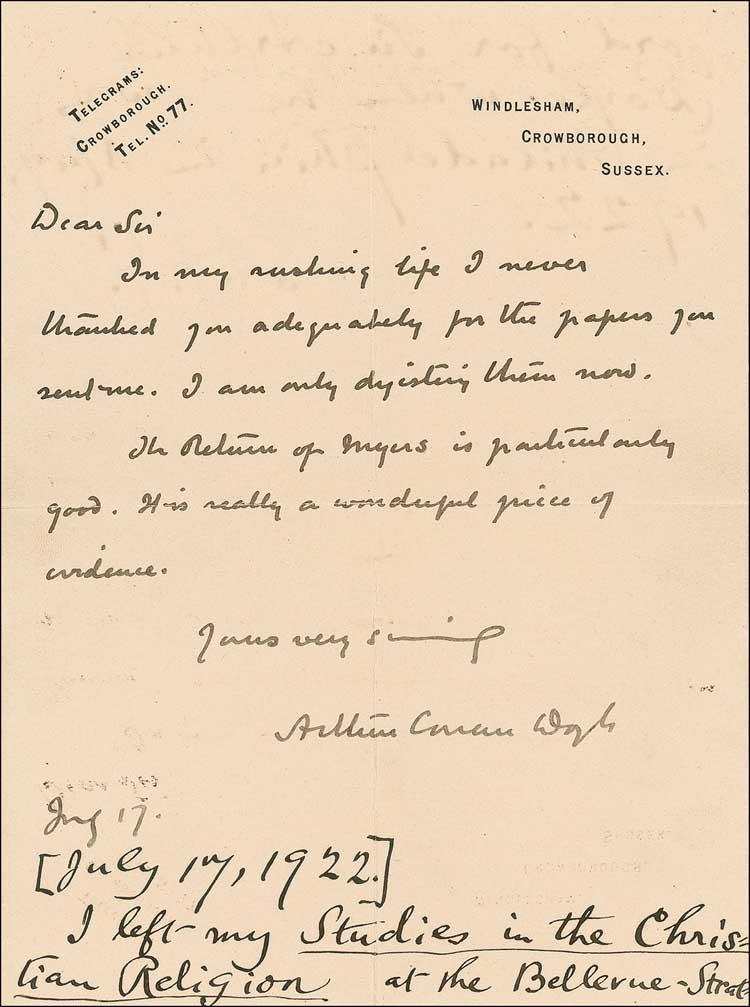 TELEGRAMS:
CROWBOROUGH.
TEL. No 77.
WINDLESHAM,
CROWBOROUGH,
SUSSEX.
Dear Sir
In my rushing life I never
thanked you adequately for the papers you
sent me. I am only digesting them now.
The Return of Myers is particularly
good. It is really a wonderful piece of
evidence.
Yours very sincerely
Arthur Conan Doyle
July 17.
[July 17, 1922.]
I left my Studies in the Chris-
tian Religion at the Bellevue-Strat-